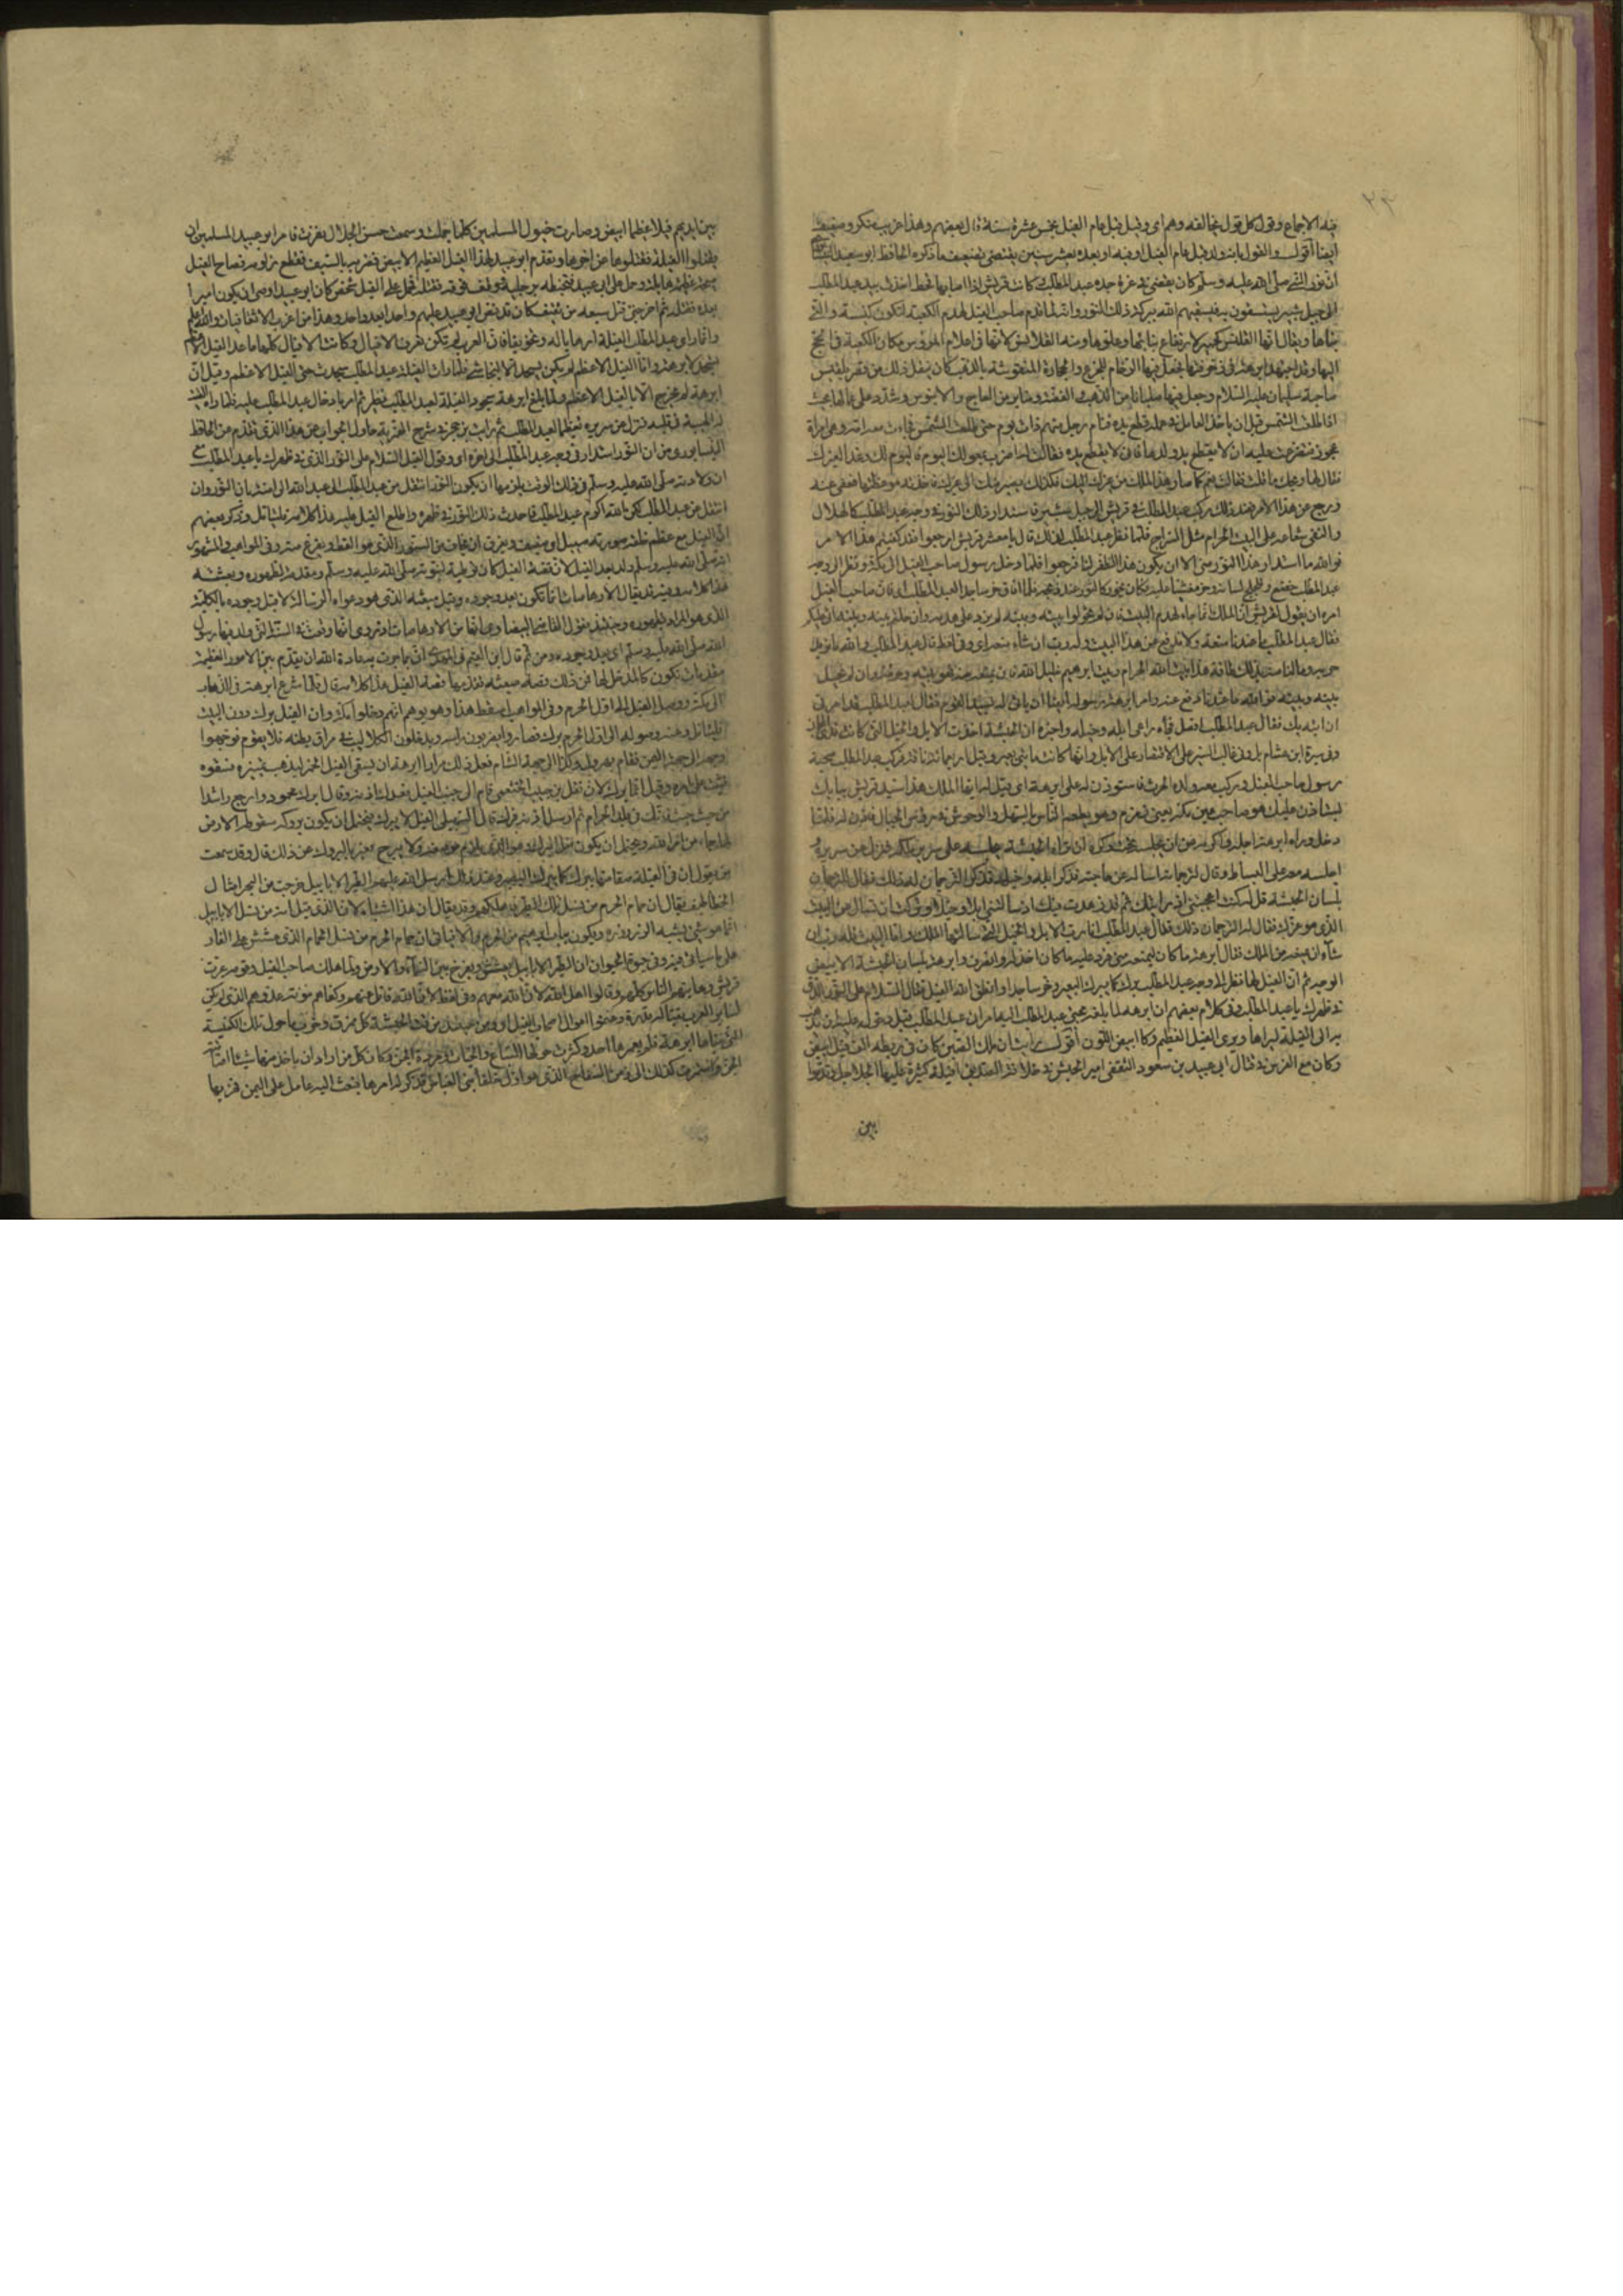 ٢٣
فيه الاجماع وقول كل قول يخالفه وهم اى وقيل قبل عام الفيل بخمس عشرة سنة قال بعضهم وهذا غريب منكر وضعيف
ايضا أقول والقول بانه ولد قبل عام الفيل او فيه او بعده بعشر سنين يقتضى تضعيف ما ذكره الحافظ ابو سعيد
أن نور النبى صلى الله عليه وسلم كان يضىء فى غرة جده عبد المطلب وكانت قريش اذا اصابها قحط اخذت بيد عبد المطلب
الى جبل ثبير يستسقون به فيسقيهم الله ببركة ذلك النور وانه لما قدم صاحب الفيل لهدم الكعبة لتكون كنيسته التى
بناها ويقال انها القليس كجميز لارتفاع بنائها وعلوها ومنه القلانس لانها فى اعلا الرؤس مكان الكعبة فى الحج
اليها وقد اجتهد ابرهة فى زخرفتها فجعل فيها الرخام المجزع والحجارة المنقوشة بالذهب كان ينقل ذلك من قصر بلقيس
صاحبة سليمان عليه السلام وجعل فيها صلبانا من الذهب والفضة ومنابر من العاج والابنوس وشدد على عمالها بحيث
اذا طلعت الشمس قبل ان ياخذ العامل فى عمله قطع يده فنام رجل منهم ذات يوم حتى طلعت الشمس فجاءت معه امه وهى امراة
عجوز فتضرعت اليه ان لا يقطع يد ولدها فابى الا قطع يده فقالت له اضرب بمعولك اليوم فاليوم لك وغدا لغيرك
فقال لها ويحك ما قلت فقالت نعم كما صار هذا الملك من غيرك اليك فكذلك يصير منك الى غيرك فاخذته موعظتها فعفى عنه
ورجع عن هذا الامر فعند ذلك ركب عبد المطلب فى قريش الى جبل ثبير فاستدار ذلك النور فى وجه عبد المطلب كالهلال
والقى شعاعه على البيت الحرام مثل السراج فلما نظر عبد المطلب الى ذلك قال يا معشر قريش ارجعوا فقد كفيتم هذا الامر
فوالله ما استدار هذا النور منى الا ان يكون هذا الظفر لنا فرجعوا فلما دخل رسول صاحب الفيل الى مكة ونظر الى وجه
عبد المطلب خضع وتلجلج لسانه وخر مغشيا عليه فكان يخور كما يخور الثور عند ذبحه فلما افاق خر ساجدا لعبد المطلب اى فان صاحب الفيل
امره ان يقول لقريش ان الملك انما جاء لهدم البيت فان لم تحولوا بينه وبينه لم يزد على هدمه وان حلتم بينه وبينه اتى عليكم
فقال عبد المطلب ما عندنا منعة ولا ندفع عن هذا البيت وله رب ان شاء منعه اى وفى لفظ قال عبد المطلب والله ما نريد
حربه وما لنا منه بذلك طاقة هذا بيت الله الحرام وبيت ابراهيم خليل الله فان يمنعه منه فهو بيته وحرمته وان لم يحل
بينه وبينه فوالله ما عندنا دفع عنه وامر ابرهة رسوله ايضا ان ياتى له بسيد القوم فقال لعبد المطلب قد امرنى
ان اتيه بك فقال عبد المطلب افعل فجاءه راعى ابله وخيله واخبره ان الحبشة اخذت الابل والخيل التى كانت
وفى سيرة ابن هشام بل وفى غالب السير على الاقتصار على الابل وانها كانت مائتى بعير وقيل اربعمائة ناقة فركب عبد المطلب صحبة
رسول صاحب الفيل وركب معه ولده الحرث فاستوذن له على ابرهة اى وقيل له ايها الملك هذا سيد قريش ببابك
يستاذن عليك هو صاحب عين مكة يعنى زمزم وهو يطعم الناس بالسهل والوحوش فى رؤس الجبال فاذن له فلما
دخل وراه ابرهة اجله واكرمه عن ان يجلسه تحته وكره ان تراه الحبشة جلسه على سرير ملكه فنزل عن سريره
اجلسه معه على البساط وقال لترجمانه اساله عن حاجته فذكر ابله وخيله فذكر الترجمان له ذلك فقال للترجمان
بلسان الحبشة قل له كنت اعجبتنى اذ رايتك ثم قد زهدت فيك اذ سالتنى ابلا وخيلا وتركت ان تسال عن البيت
الذى هو عزك فقال له الترجمان ذلك فقال عبد المطلب انا رب الابل والخيل التى سالتها الملك واما البيت فله رب ان
شاء ان يمنعه من الملك فقال ابرهة ما كان ليمنعه منى فرد عليه ما كان اخذ له وانصرف وابرهة بلسان الحبشة الابيض
الوجه ثم ان الفيل لما نظر الى وجه عبد المطلب برك كما يبرك البعير وخر ساجدا وانطق الله الفيل فقال السلام على النور الذى
فى ظهرك يا عبد المطلب وفى كلام بعضهم ان ابرهة لما بلغه مجىء عبد المطلب اليه امر ان عبد المطلب قبل دخوله عليه ان
يرائى الفيلة ليراها ويرى الفيل العظيم وكان ابيض اللون أقول رايت ان ملك الصين كان فى مربطه الف فيل ابيض
وكان مع الفرس فى قتال ابى عبيد بن مسعود الثقفى امير الجيش فى خلافة الصديق افيلة كثيرة عليها الجلاجل وقدموا
بين
بين ايديهم فيلا عظيما ابيض وصارت خيول المسلمين كلما حملت وسمعت حس الجلاجل نفرت فامر ابو عبيد المسلمين ان
يقتلوا الفيلة فقتلوها عن اخرها وتقدم ابو عبيد لهذا الفيل العظيم الابيض فضربه بالسيف فقطع زلومه فصاح الفيل
صيحة عظيمة هائلة وحمل على ابى عبيد فتخبطه برجليه ووقف فوقه فقتله فحمل على الفيل شخص كان ابو عبيد اوصى ان يكون اميرا
بعده فقتله ثم اخر حتى قتل سبعة من ثقيف كان قد نص ابو عبيد عليهم واحدا بعد واحد وهذا من اغرب الاتفاقيات والله اعلم
وانما راى عبد المطلب الفيلة ارهابا له وتخويفا فان العرب لم تكن تعرف الافيال وكانت الافيال كلها ما عدا الفيل الاعظم
تسجد لابرهة واما الفيل الاعظم لم يكن يسجد الا للنجاشى فلما رات الفيلة عبد المطلب سجدت حتى الفيل الاعظم وقيل ان
ابرهة لم يخرج الا بالفيل الاعظم ولما بلغ ابرهة سجود الفيلة لعبد المطلب تطير ثم امر بادخال عبد المطلب عليه فلما راه القيت
له الهيبة فى قلبه فنزل عن سريره تعظيما لعبد المطلب ثم رايت بن حجر فى شرح الهمزية حاول الجواب عن هذا الذى تقدم عن الحافظ
النيسابورى من ان النور استدار فى وجه عبد المطلب الى اخره اى وقول الفيل السلام على النور الذى فى ظهرك يا عبد المطلب مع
ان ولادته صلى الله عليه وسلم فى ذلك الوقت يلزمها ان يكون النور انتقل من عبد المطلب الى عبد الله الى امنة بان النور وان
انتقل من عبد المطلب لكن الله اكرم عبد المطلب فاحدث ذلك النور فى ظهره واطلع الفيل عليه هذا كلامه فليتامل وذكر بعضهم
ان الفيل مع عظم خلقه صورته ضئيل او ضعيف ويفرق اى يخاف من السنور الذى هو القط ويفزع منه وفى المواهب والمشهور
انه صلى الله عليه وسلم ولد بعد الفيل لان قصة الفيل كان توطئة لنبوته صلى الله عليه وسلم ومقدمة لظهوره وبعثته
هذا كلامه وفيه انه قد يقال الارهاصات انما تكون بعد وجوده وقبل مبعثه الذى هو دعواه الرسالة لا قبل وجوده بالكلية
الذى هو المراد بظهوره وحينئذ يقول القاضى البيضاوى انها من الارهاصات اذ يروى انها وقعت فى السنة التى ولد فيها رسول
الله صلى الله عليه وسلم اى بعد وجوده ومن ثم قال ابن القيم فى الهدى ان مما جرت به عادة الله ان يقدم بين الامور العظيمة
مقدمات تكون كالمدخل لها فمن ذلك قصة مبعثه تقدمها قصة الفيل هذا كلامه قال ولما شرع ابرهة فى الذهاب
الى مكة ووصل الفيل الى اول الحرم وفى المواهب اسقط هذا وهو يوهم انهم دخلوا مكة وان الفيل برك دون البيت
فليتامل وعند وصوله الى اول الحرم برك فصاروا يضربون راسه ويدخلون الكلاليب فى مراق بطنه فلا يقوم فوجهوا
وجهه الى جهة اليمن فقام يهرول وكذا الى جهة الشام ففعل ذلك مرارا امر ابرهة ان يسقى الفيل الخمر ليذهب تمييزه فسقوه
فثبت على امره وقيل انما برك لان نفيل بن حبيب الخثعمى قام الى جنب الفيل فعرك اذنه وقال ابرك محمود وارجع راشدا
من حيث جئت فانك فى بلد الله الحرام ثم ارسل اذنه فبرك قال السهيلى الفيل لا يبرك فيحتمل ان يكون بروكه سقوطه الى الارض
لما جاءه من امر الله ويحتمل ان يكون فعل البارك وهو الذى يلزم موضعه ولا يبرح معبر بالبروك عن ذلك قال وقد سمعت
من يقول ان فى الفيلة صنفا منها يبرك كما يبرك البعير وعند ذلك ارسل الله عليهم الطير الابابيل خرجت من البحر امثال
الخطاطيف يقال ان حمام الحرم من نسل تلك الطير فاهلكتهم وقد يقال ان هذا اشتباه لان الذى قيل انه من نسل الابابيل
انما هو شىء يشبه الزرزور ويكون بباب ابراهيم من الحرم والا فياتى ان حمام الحرم من نسل الحمام الذى عشش على الغار
على ما سياتى فيه وفى حيوة الحيوان ان الطير الابابيل تعشش وتفرخ بين السماء والارض ولما هلك صاحب الفيل وقومه عزت
قريش وهابتهم الناس كلهم وقالوا اهل الله لان الله معهم وفى لفظ لان الله قاتل عنهم وكفاهم مؤنة عدوهم الذى لم يكن
لسائر العرب بقتاله قدرة وغنموا اموال اصحاب الفيل اى ومن حينئذ مزقت الحبشة كل ممزق وخرب ما حول تلك الكنيسة
التى بناها ابرهة فلم يعمرها احد وكثرت حولها السباع والحيات ومردة الجن وكان كل من اراد ان ياخذ منها شيئا اصابته
الجن واستمرت كذلك الى زمن السفاح الذى هو اول خلفاء بنى العباس فذكر له امرها فبعث اليه عامله على اليمن فخربها